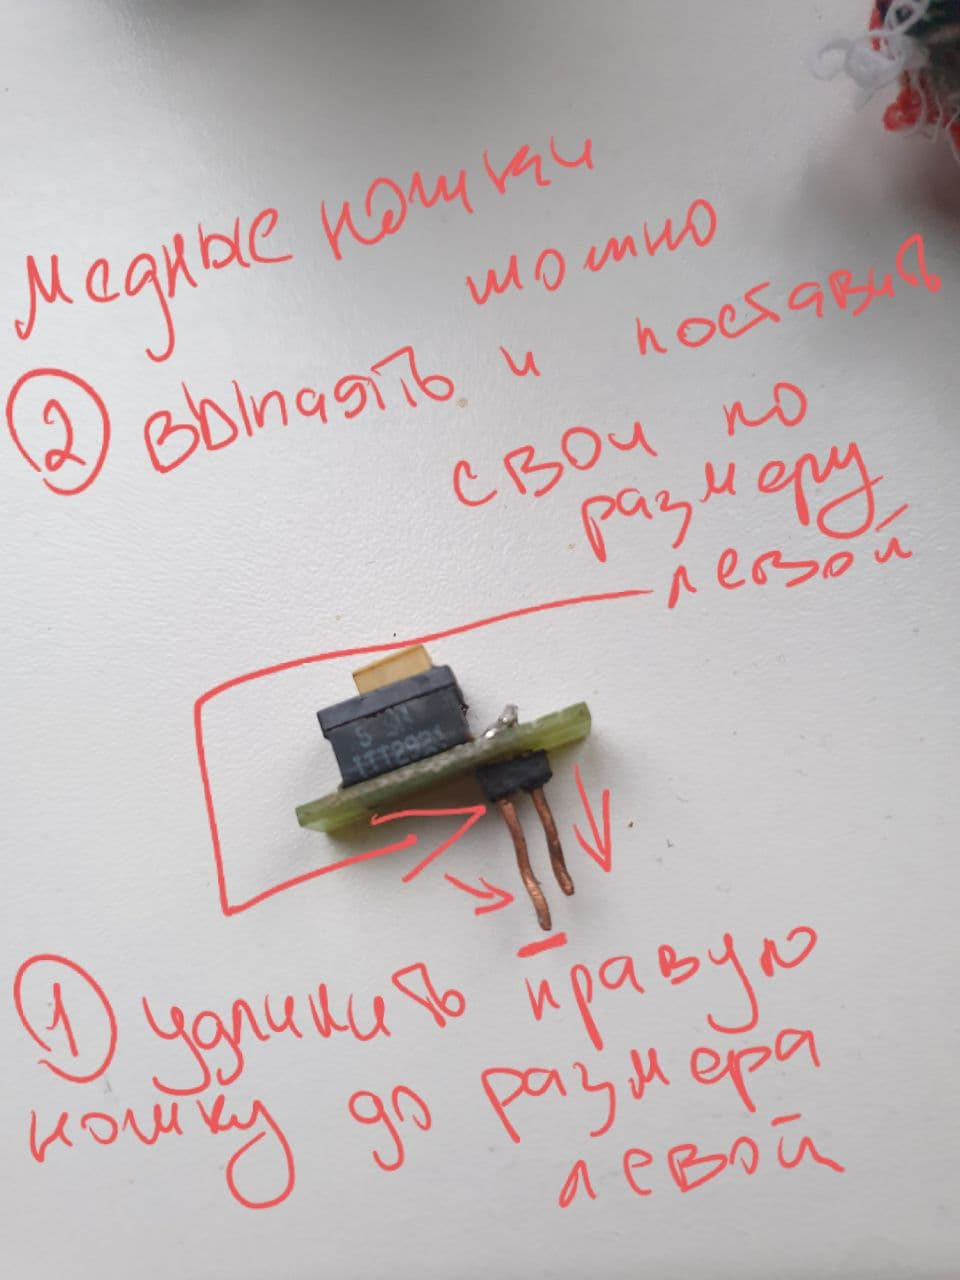 Медные ножки
можно
② выпаять и поставить
свои по
размеру
левой
5 3N
1TT2921
① Удлинить правую
ножку до размера
левой